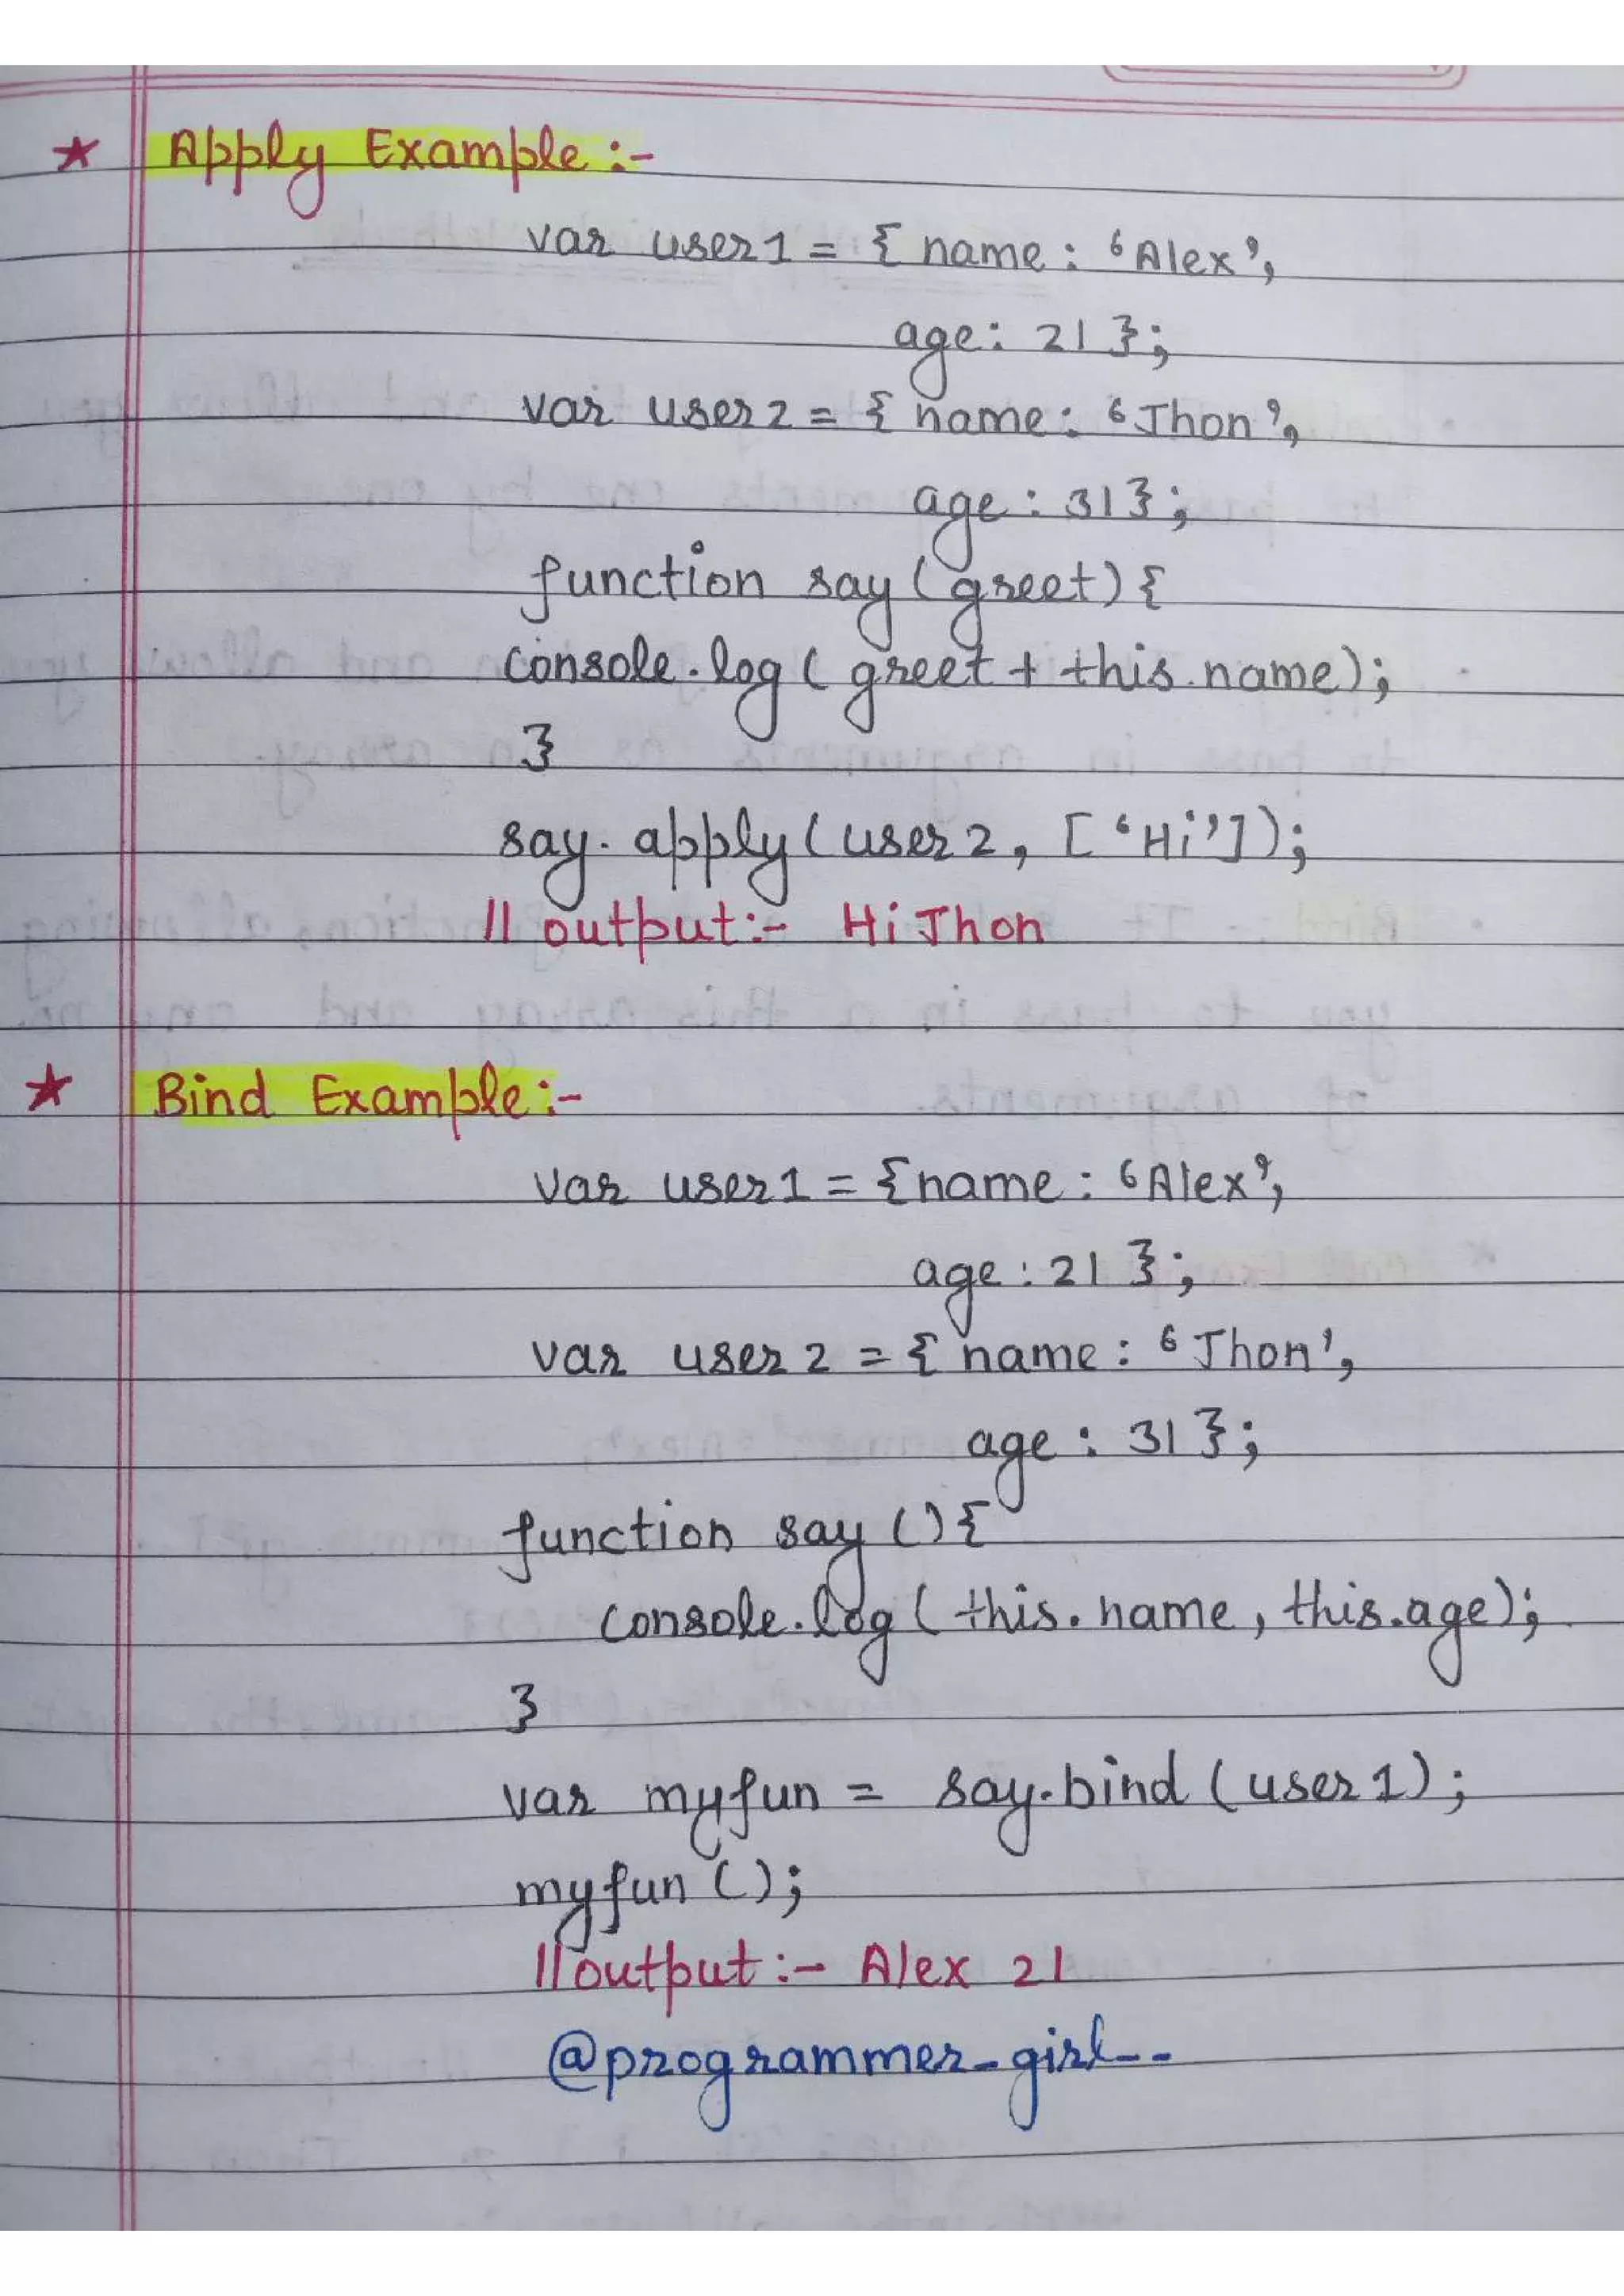 ★ Apply Example :-
var user1 = { name : ‘Alex’,
age : 21 };
var user2 = { name : ‘Jhon’,
age : 31 };
function say (greet) {
console.log ( greet + this.name);
}
say.apply (user2, [‘Hi’]);
// output :- Hi Jhon
★ Bind Example :-
var user1 = {name : ‘Alex’,
age : 21 };
var user2 = { name : ‘Jhon’,
age : 31 };
function say () {
console.log ( this.name, this.age);
}
var myfun = say.bind (user1);
myfun ();
// output :- Alex 21
@programmer_girl_ _